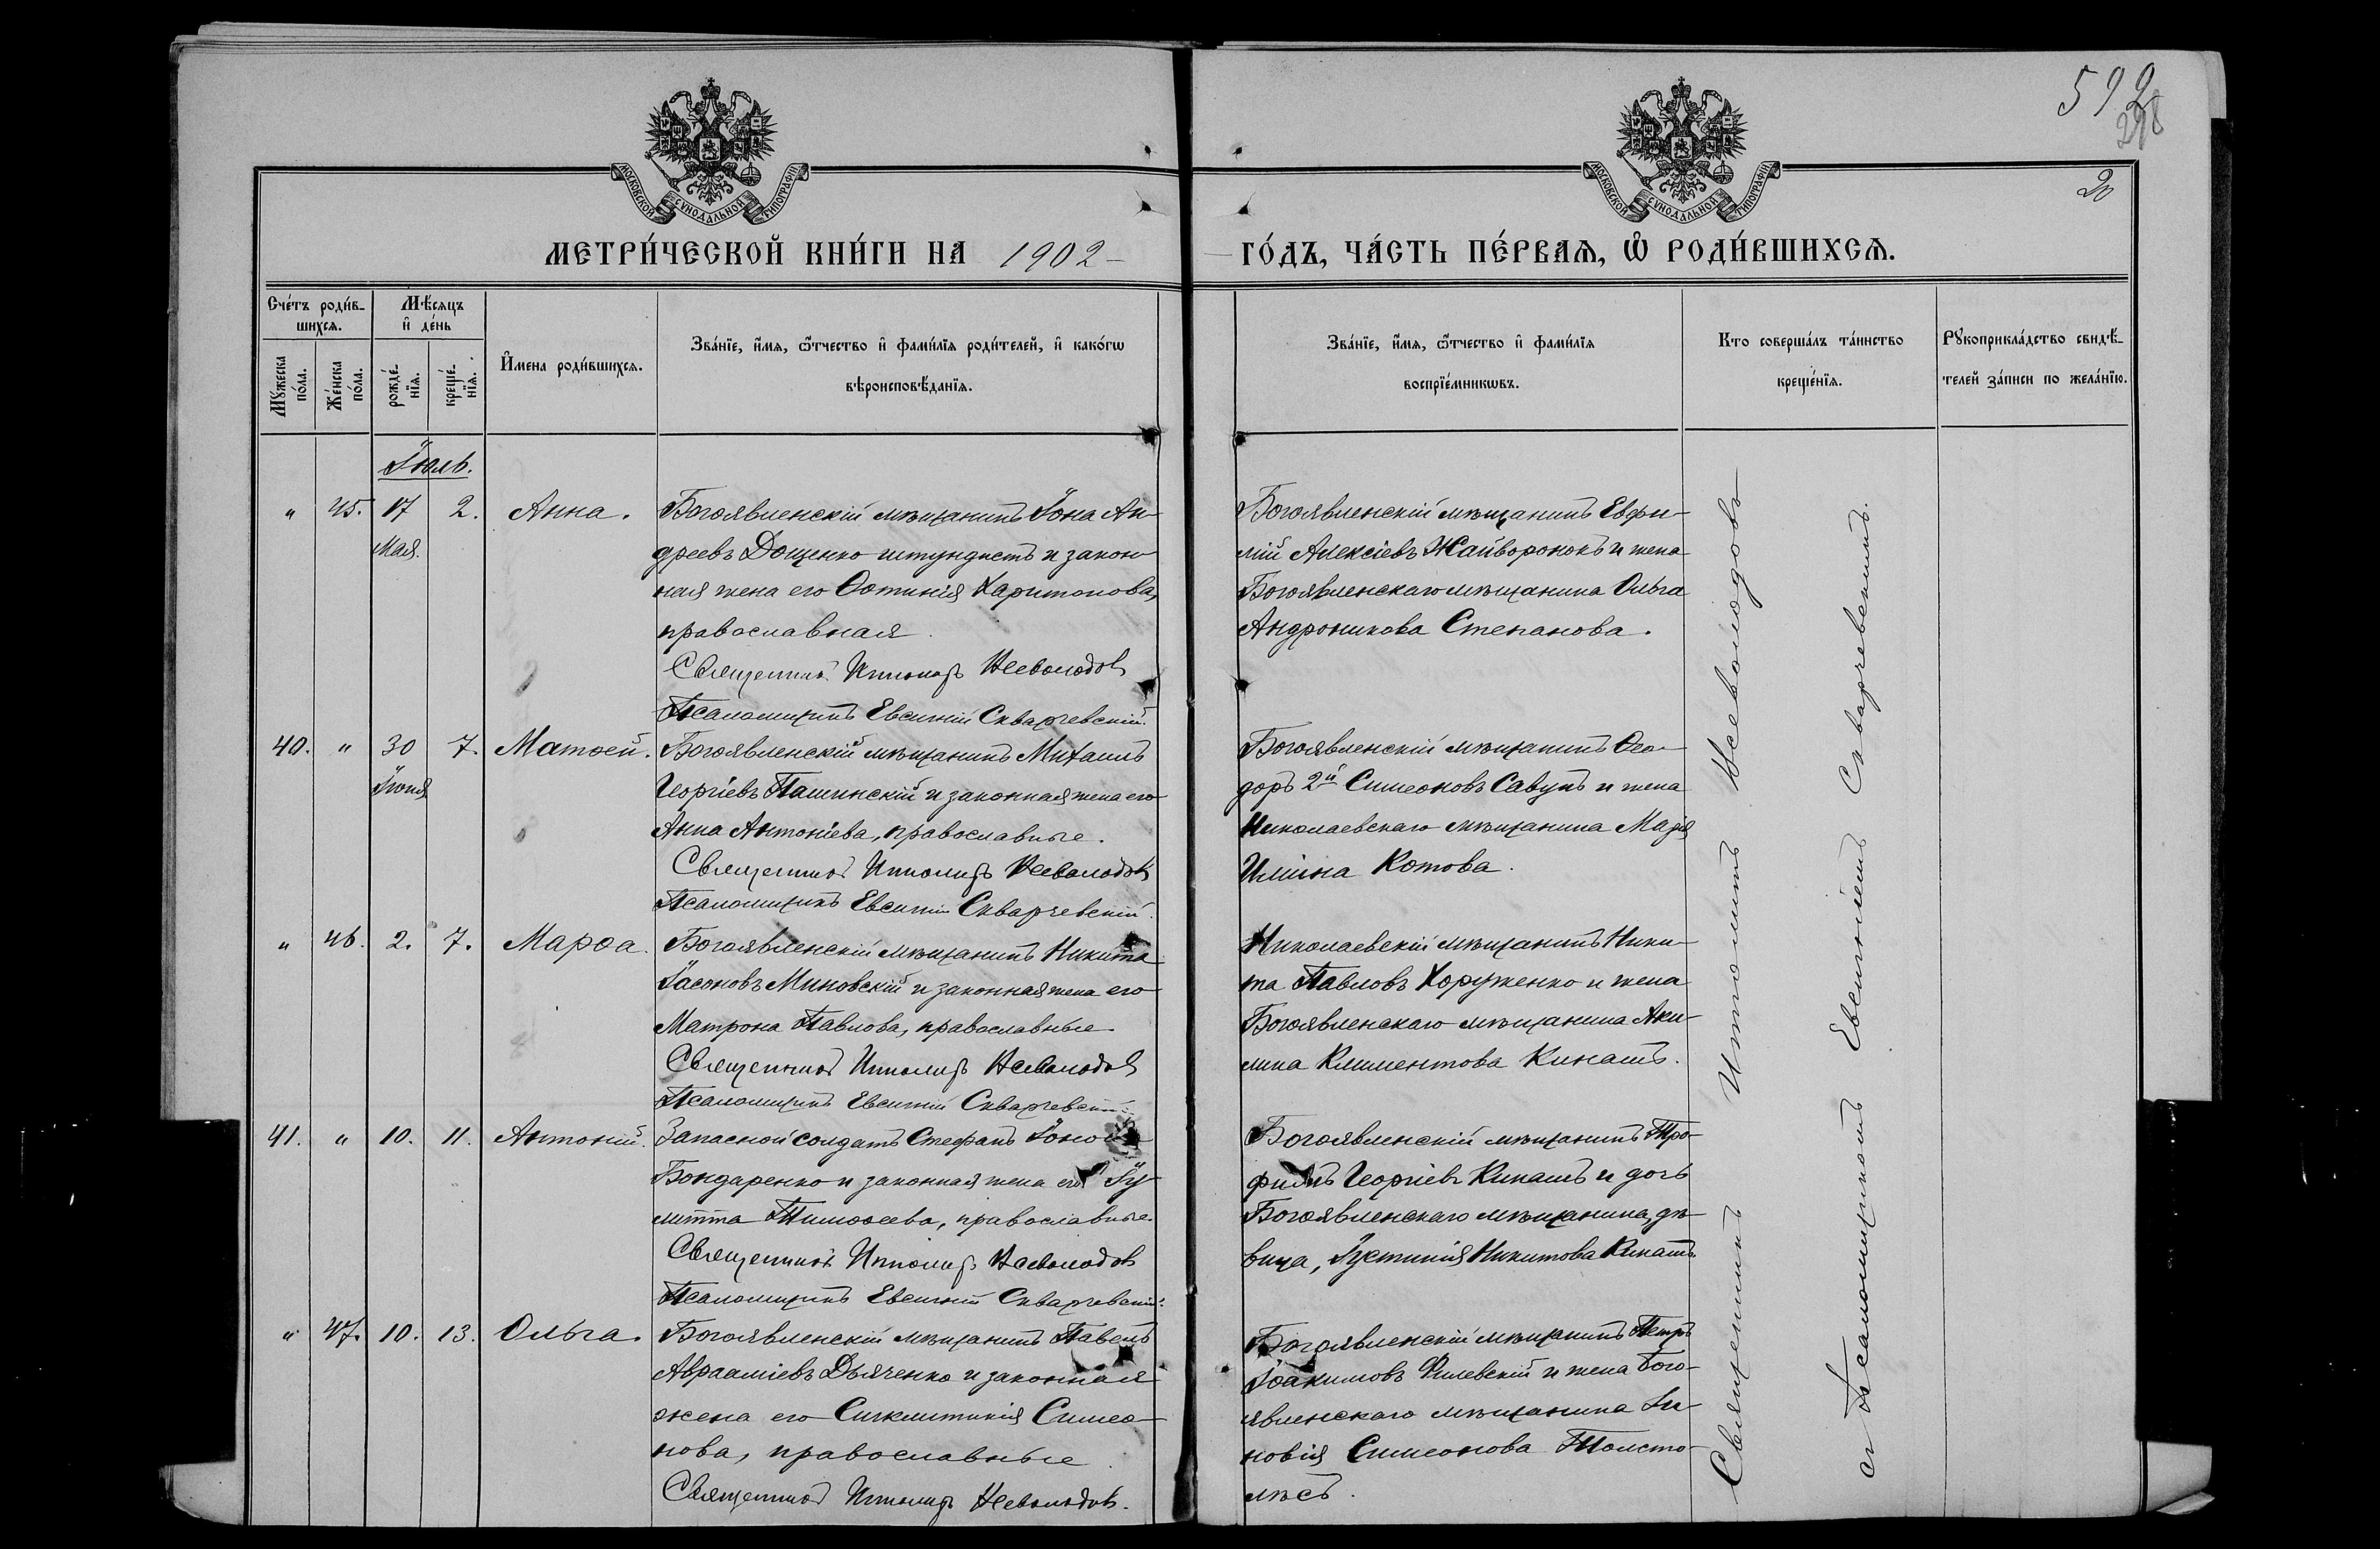 592
298
20
МОСКОВСКОЙ СѴНОДАЛЬНОЙ ТИПОГРАФІИ
МОСКОВСКОЙ СѴНОДАЛЬНОЙ ТИПОГРАФІИ
МЕТРИ́ЧЕСКОЙ КНИ́ГИ НА 1902 ГО́ДЪ, ЧА́СТЬ ПЕ́РВАѦ, Ѽ РОДИ́ВШИХСѦ.
Сче́тъ роди́в-
шихсѧ.
Мѣ́сяцъ
и҆ де́нь
Мꙋ́жеска
по́ла.
Же́нска
по́ла.
рожде́-
нїѧ.
креще́-
нїѧ.
И҆мена роди́вшихсѧ.
Зва́нїе, и҆́мѧ, ѻ҆́тчество и҆ фами́лїѧ роди́телей, и҆ како́гѡ
вѣроисповѣ́данїѧ.
Зва́нїе, и҆́мѧ, ѻ҆́тчество и҆ фами́лїѧ
воспрїе́мникѡвъ.
Кто соверша́лъ та́инство
креще́нїѧ.
Рꙋкоприкла́дство свидѣ́-
телей за́писи по жела́нїю.
Іюль.
" 45. 17 2. Анна. Богоявленскій мѣщанинъ Іона Ан-
Мая. дреевъ Доценко штундистъ и закон-
ная жена его Фотинія Харитонова,
православная.
Священникъ Ипполитъ Всеволодовъ
Псаломщикъ Евсигній Скварчевскій.
Богоявленскій мѣщанинъ Евфи-
мій Алексіевъ Жайворонокъ и жена
Богоявленскаго мѣщанина Ольга
Андроникова Степанова.
40. " 30 7. Матѳей. Богоявленскій мѣщанинъ Михаилъ
Іюня Георгіевъ Пашинскій и законная жена его
Анна Антоніева, православные.
Священникъ Ипполитъ Всеволодовъ
Псаломщикъ Евсигній Скварчевскій.
Богоявленскій мѣщанинъ Ѳео-
доръ 2й Симеоновъ Савунъ и жена
Николаевскаго мѣщанина Марія
Иліина Котова.
" 46. 2. 7. Марѳа. Богоявленскій мѣщанинъ Никита
Іасоновъ Миновскій и законная жена его
Матрона Павлова, православные
Священникъ Ипполитъ Всеволодовъ
Псаломщикъ Евсигній Скварчевскій.
Николаевскій мѣщанинъ Ники-
та Павловъ Хоруженко и жена
Богоявленскаго мѣщанина Аки-
лина Климентова Кинашъ.
41. " 10. 11. Антоній. Запасной солдатъ Стефанъ
Бондаренко и законная жена его Іу-
литта Тимоѳеева, православные.
Священникъ Ипполитъ Всеволодовъ
Псаломщикъ Евсигній Скварчевскій.
Богоявленскій мѣщанинъ Тро-
фимъ Георгіевъ Кинашъ и дочь
Богоявленскаго мѣщанина, дѣ-
вица, Іустинія Никитова Кинашъ
" 47. 10. 13. Ольга. Богоявленскій мѣщанинъ Павелъ
Авраамiевъ Дьяченко и законная
жена его Синклитикія Симео-
нова, православные.
Священникъ Ипполитъ Всеволодовъ.
Богоявленскій мѣщанинъ Петръ
Іоакимовъ Филевскій и жена Бого-
явленскаго мѣщанина Зи-
новія Симеонова Толсто-
лѣсъ.
Священникъ Ипполитъ Всеволодовъ
съ Псаломщикомъ Евсигніемъ Скварчевскимъ.